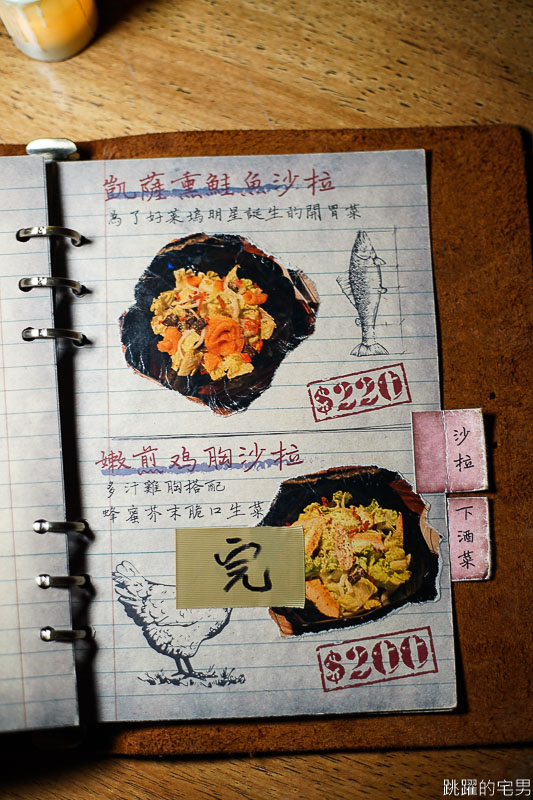 凱薩熏鮭魚沙拉
為了好萊塢明星誕生的開胃菜
$220
沙拉
嫩煎鸡胸沙拉
多汁雞胸搭配
蜂蜜芥末脆口生菜
下酒菜
完
$200
跳躍的宅男